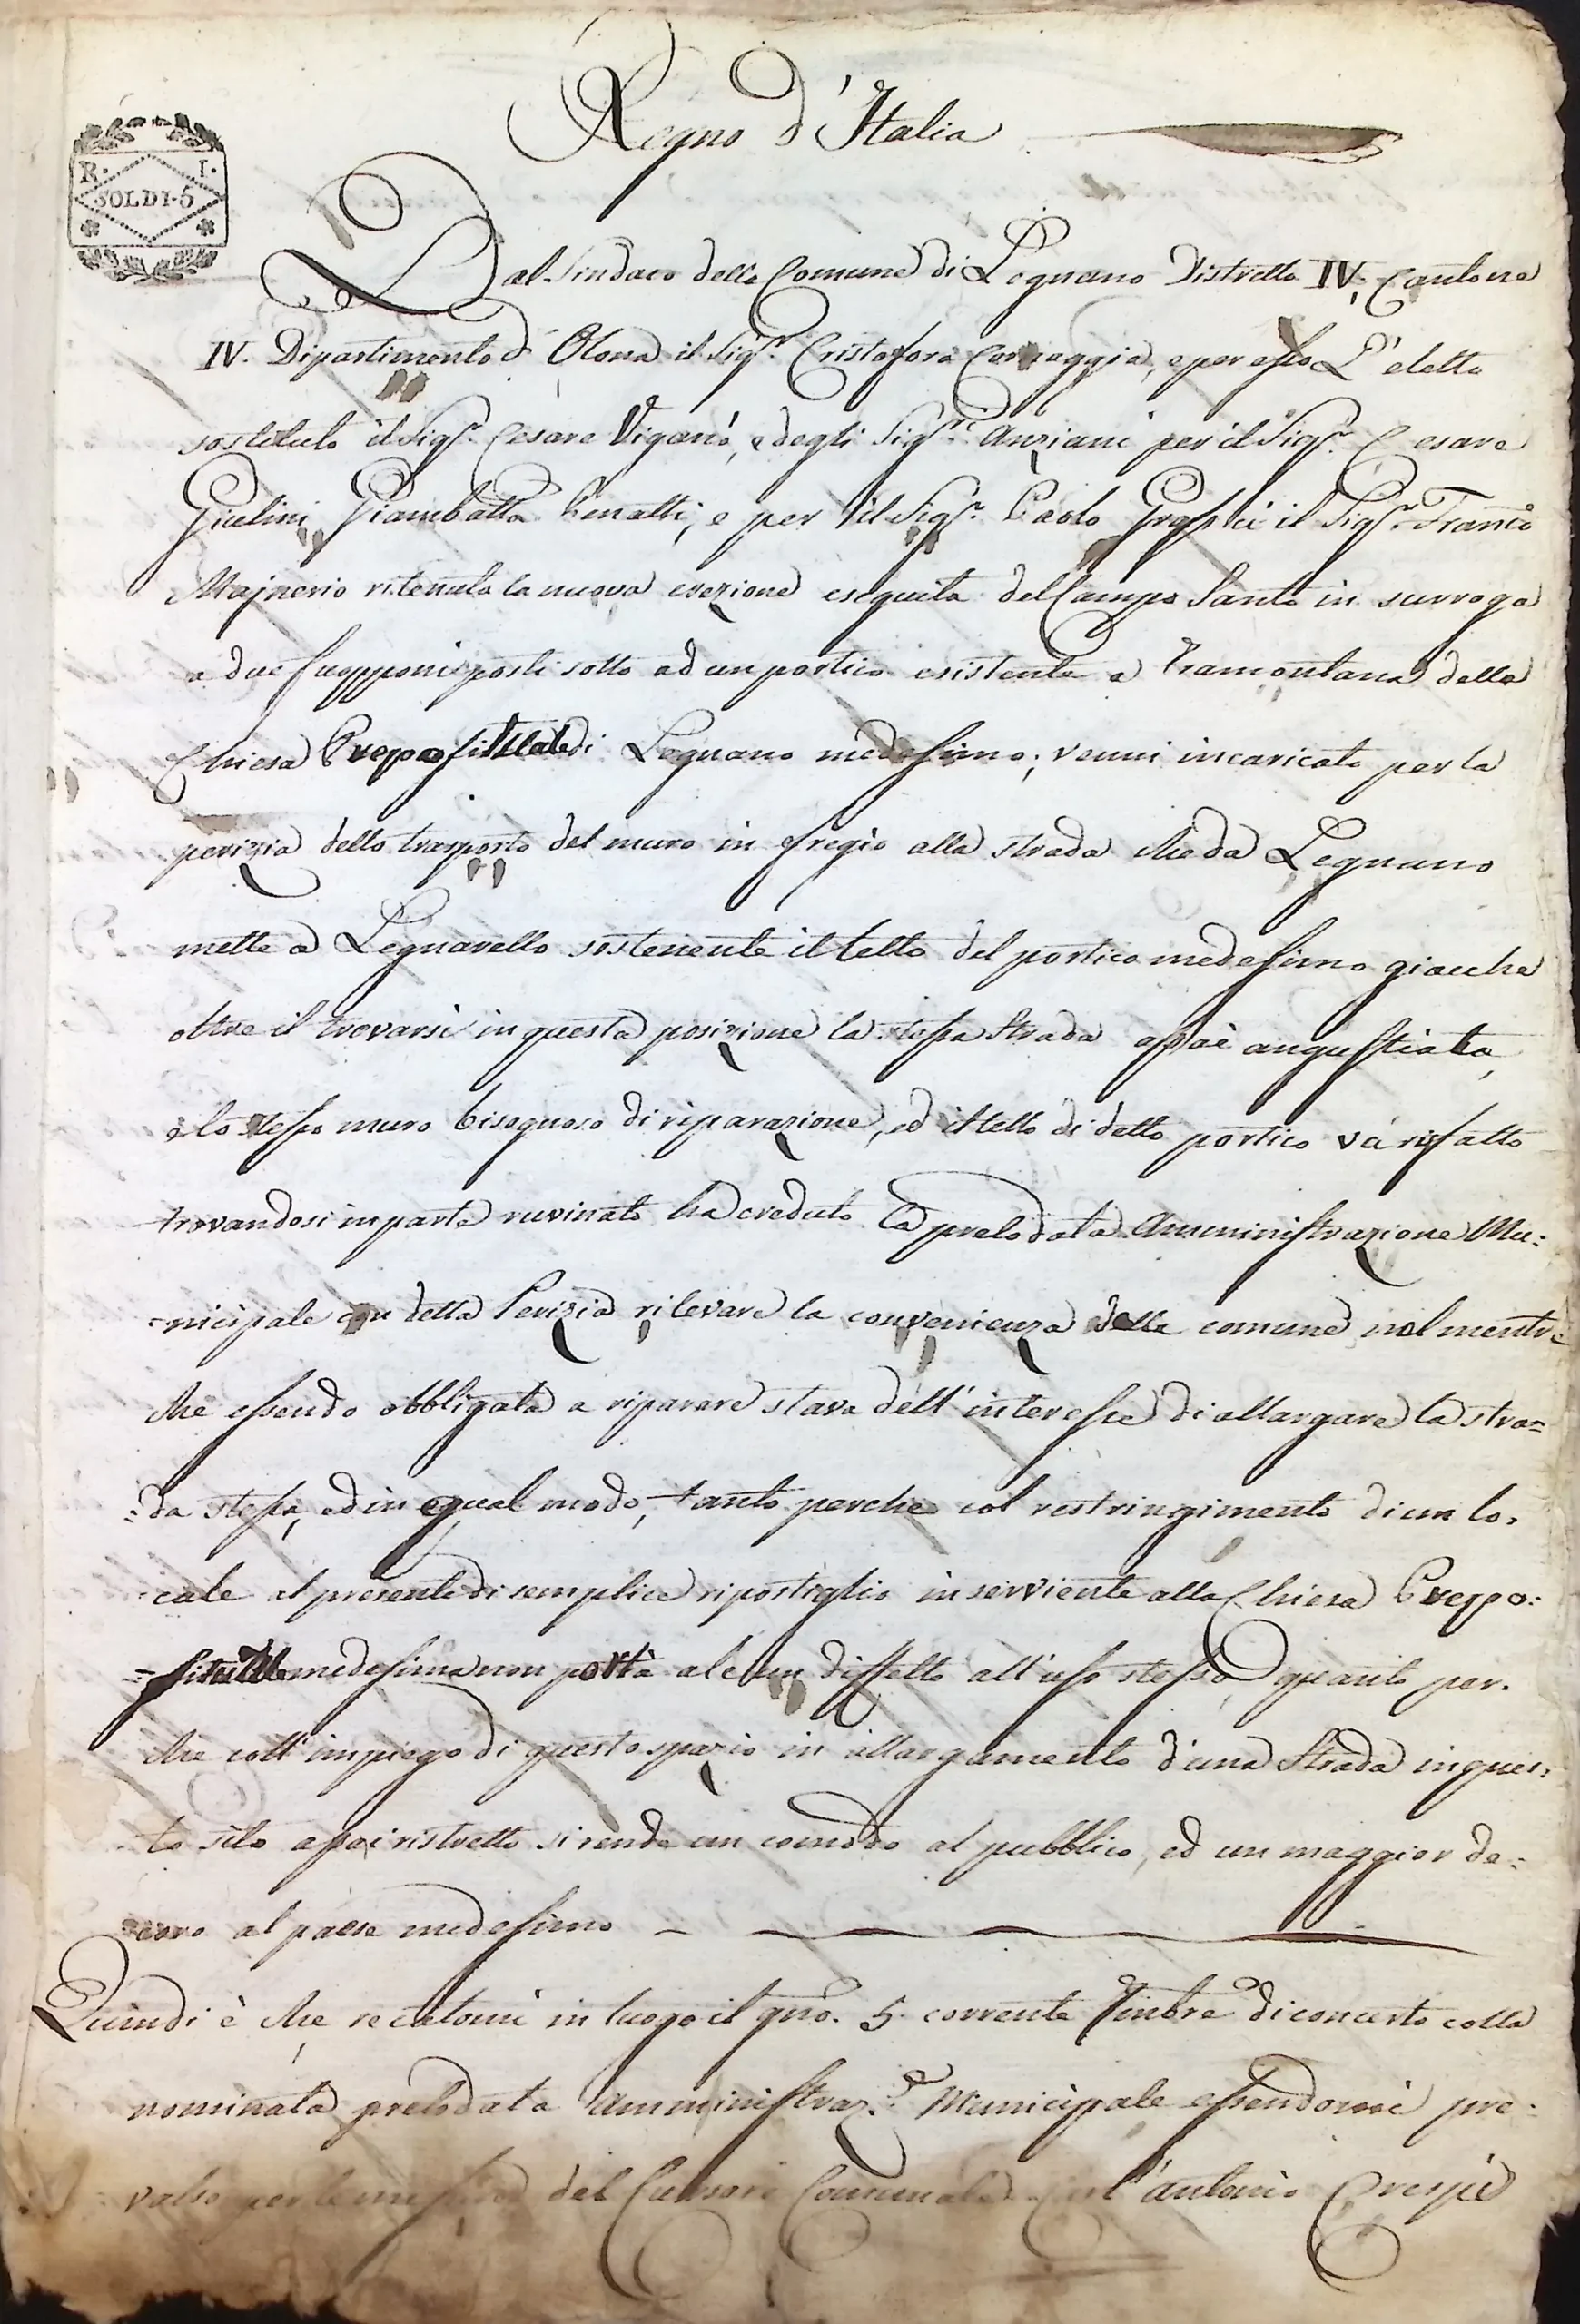 Regno d'Italia
R. I.
SOLDI·5
Dal Sindaco della Comune di Legnano Distretto IV, Cantone
IV. Dipartimento d'Olona il Sig.r Cristoforo e per esso L'eletto
sostituto il Sig.r Cesare Viganò, e degli Sig.ri Anziani per il Sig.r Cesare
Giulini Giambatta e per il Sig.r Paolo il Sig.r Franco
Majnerio ritenuta la nuova erezione eseguita del Campo Santo in surroga
a due posti sotto ad un portico esistente a Tramontana della
Chiesa Prepositurale di Legnano medesimo; venni incaricato per la
perizia dello trasporto del muro in fregio alla strada che da Legnano
mette a Legnarello sostenente il tetto del portico medesimo giacche
oltre il trovarsi in questa posizione la stessa Strada assai angustiata,
è lo stesso muro bisognoso di riparazione, ed il tetto di detto portico và rifatto
trovandosi in parte ruvinato ha creduto la prelodata Amministrazione Mu:
=nicipale con detta Perizia rilevare la convenienza della comune nel mentre
che essendo obbligata a riparare stava dell'interesse di allargare la stra=
:da stessa, ed in egual modo, tanto perche col restringimento di un lo=
=cale al presente di semplice ripostiglio inserviente alla Chiesa Preppo:
=siturale medesima non portà alcun diffetto all'uso stesso, quanto per=
che coll'impiego di questo spazio in allargamento d'una Strada in ques=
to sito assai ristretto si rende un comodo al pubblico, ed un maggior de:
=coro al paese medesimo
Quindi è che recatomi in luogo il gno. 5. corrente 9mbre di concerto colla
nominata prelodata Amministraz.e Municipale essendomi pre:
valso per le misure del Cursore Comunale Antonio Crespi